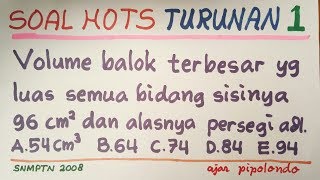 SOAL HOTS TURUNAN 1
Volume balok terbesar yg
luas semua bidang sisinya
96 cm² dan alasnya persegi adl.
A.54cm³ B.64 C.74 D.84 E.94
SNMPTN 2008 ajar pipolondo